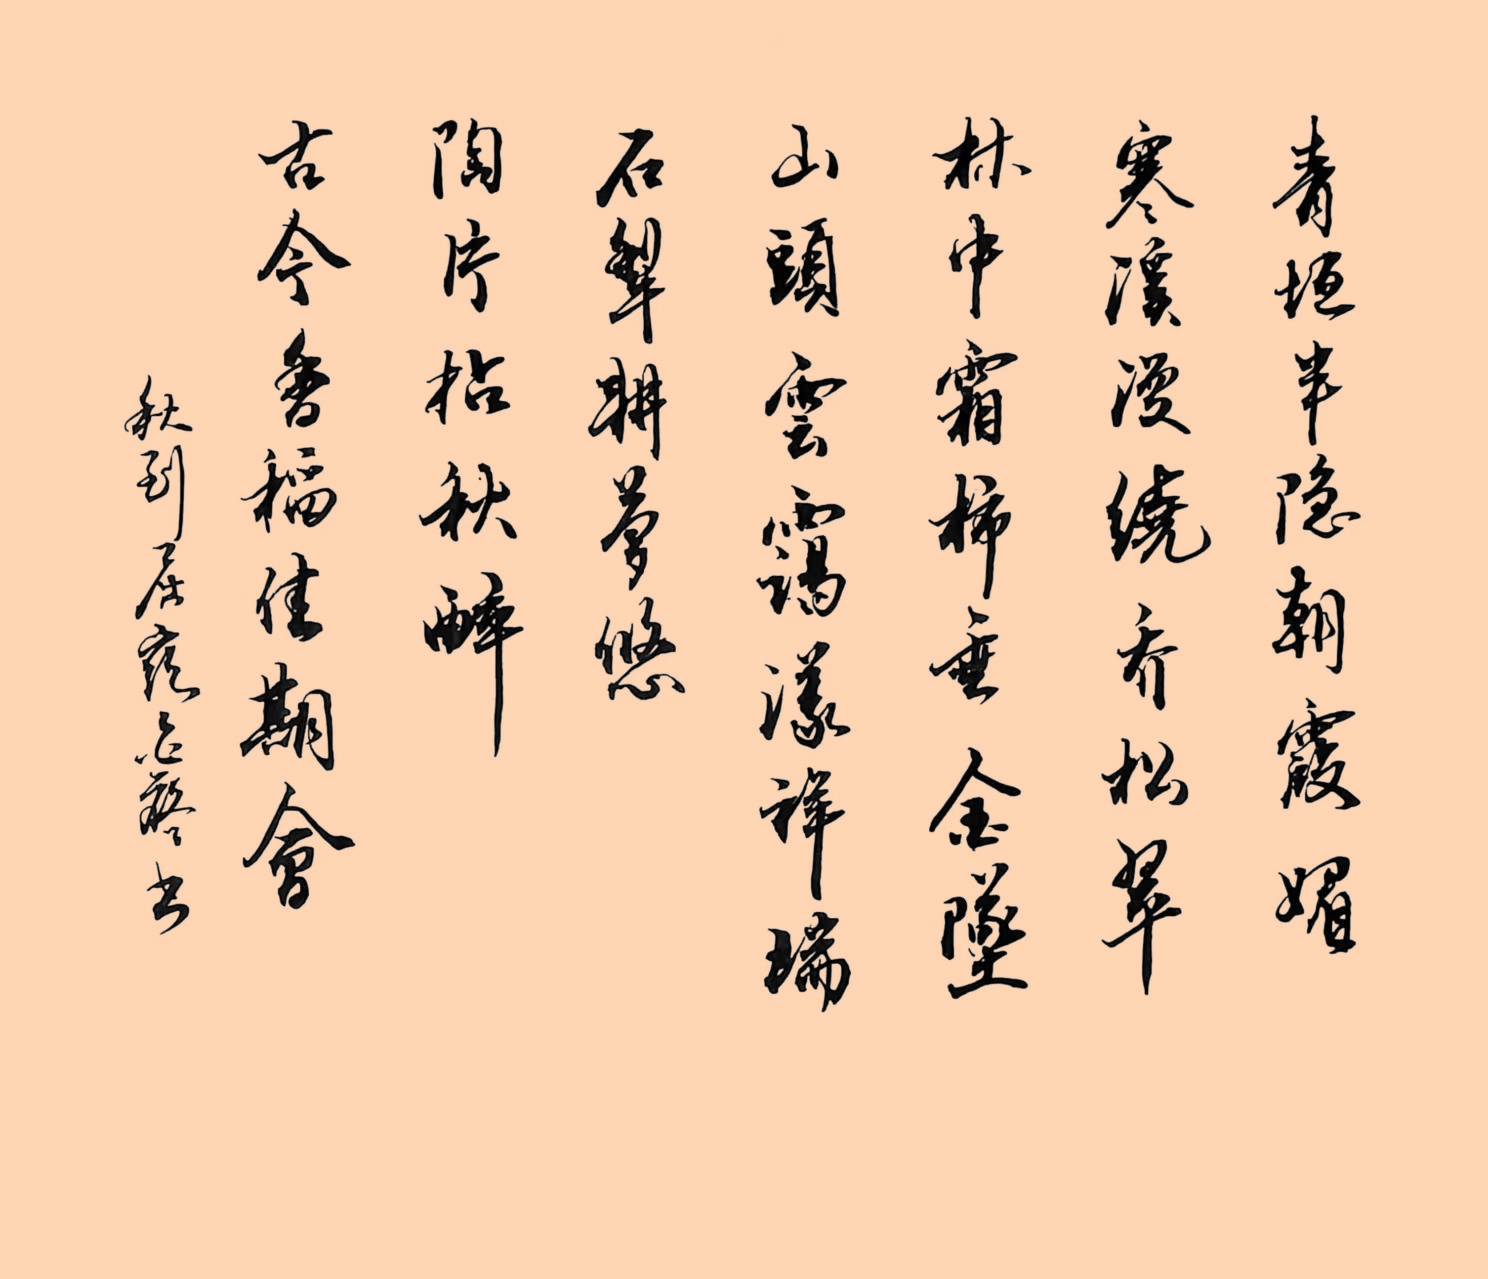 青垣半隐朝霞媚
寒溪漫繞喬松翠
林中霜柿垂金墜
山頭雲靄漾祥瑞
石犁耕夢悠
陶片拈秋醉
古今魯稻佳期會
秋到居 書